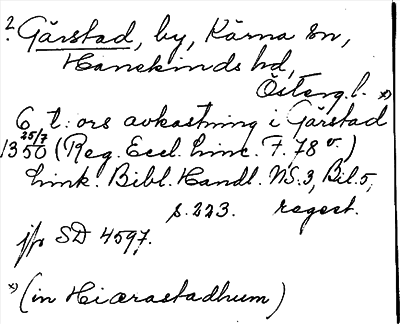 2. Gärstad, by, Kärna sn,
Hanekinds hd,
Österg. l. *)
6 t: ors avkastning i Gärstad
13 25/7 50 (Reg. Eccl. Linc. F. 78 v.)
Link. Bibl. Handl. NS. 3, Bil. 5,
s. 223. regest.
jfr SD 4597.
*) (in Hiærastadhum)